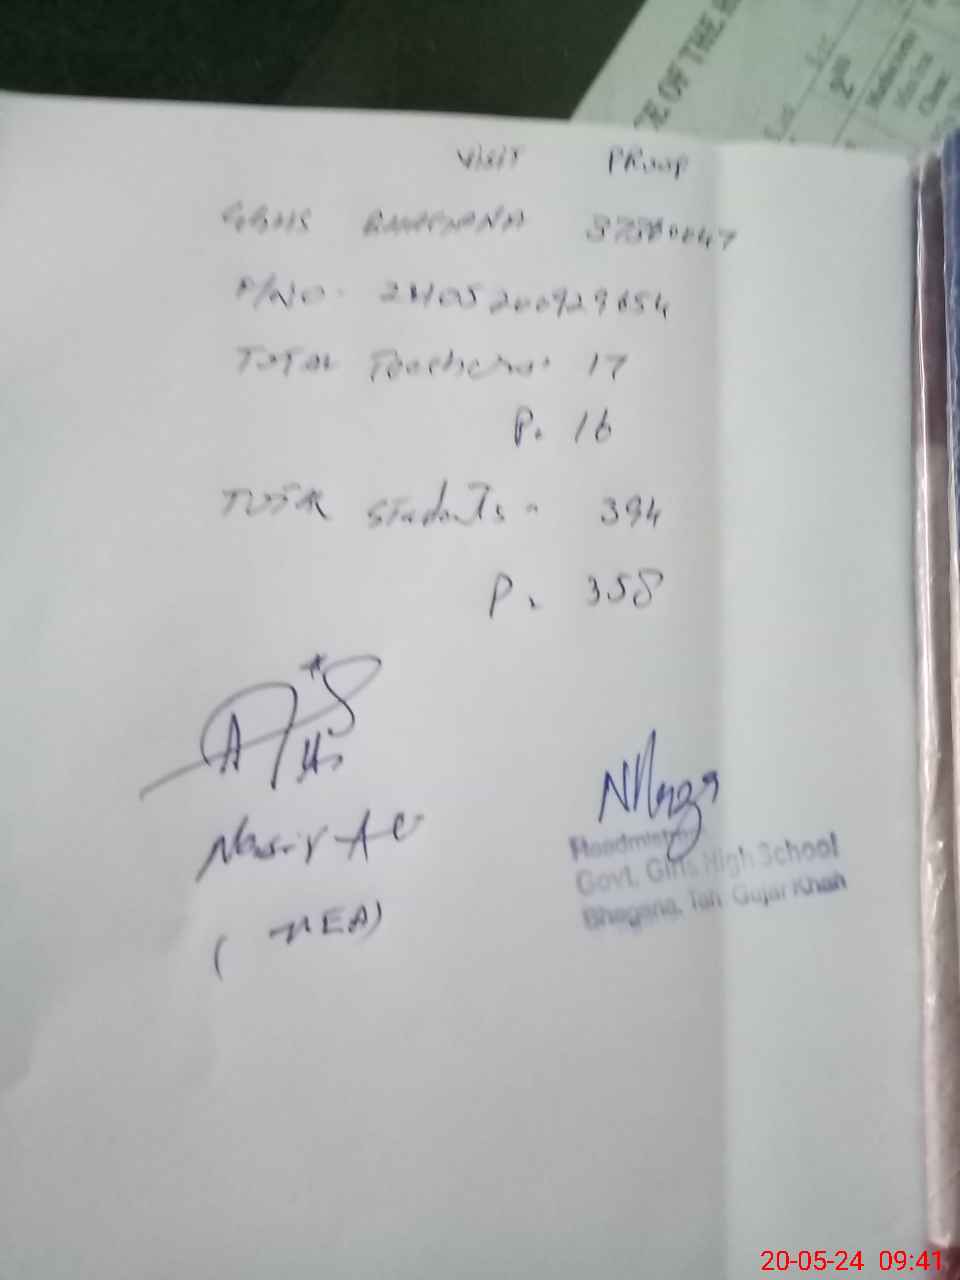 OF THE
VISIT PROOF
GGHS BHAGANA 37380047
F/NO. 2405200929654
TOTAL Teachers. 17
P. 16
TOTAL Students - 394
P. 358
Nasir A
(MEA)
Headmistress
Govt. Girls High School
Bhagana, Teh Gujar Khan
20-05-24 09:41